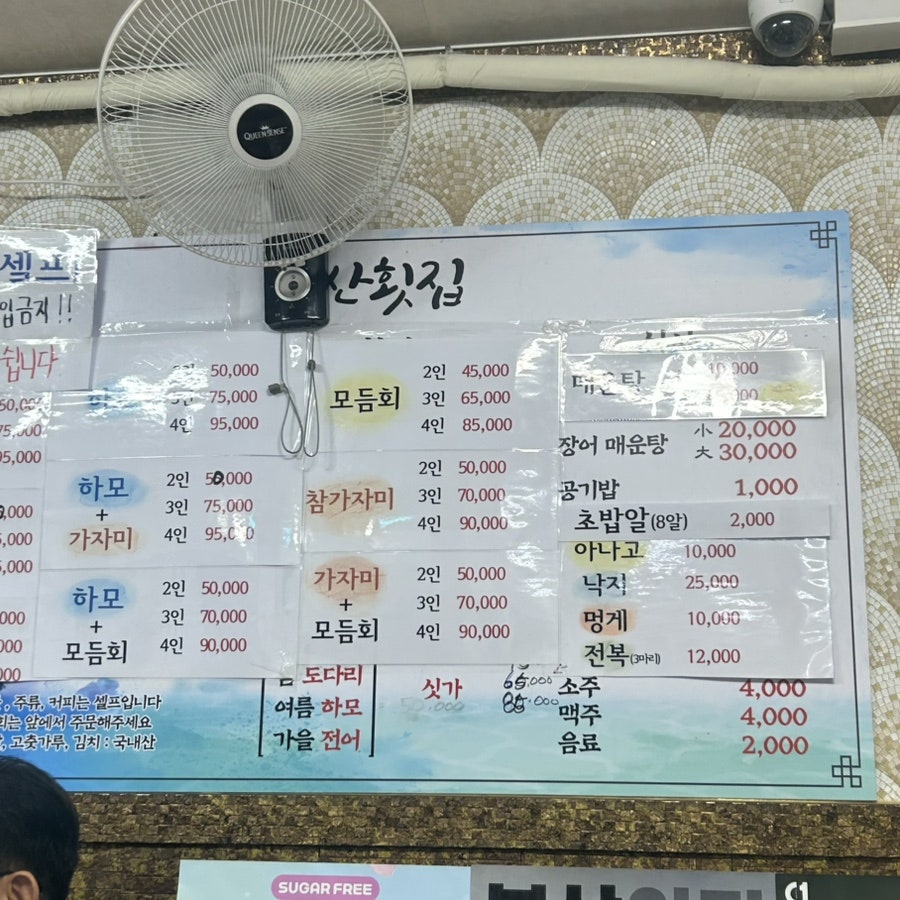 QUEEN SENSE
셀프
입금지!!
쉽니다
산횟집
50,000
75,000
95,000
하모
2인 50,000
3인 75,000
4인 95,000
하모
+
가자미
2인 50,000
3인 75,000
4인 95,000
하모
+
모듬회
2인 50,000
3인 70,000
4인 90,000
모듬회
2인 45,000
3인 65,000
4인 85,000
참가자미
2인 50,000
3인 70,000
4인 90,000
가자미
+
모듬회
2인 50,000
3인 70,000
4인 90,000
매운탕
장어 매운탕 小 20,000
大 30,000
공기밥 1,000
초밥알(8알) 2,000
아나고 10,000
낙지 25,000
멍게 10,000
전복(3마리) 12,000
소주 4,000
맥주 4,000
음료 2,000
도다리
여름 하모
가을 전어
싯가
, 주류, 커피는 셀프입니다
회는 앞에서 주문해주세요
, 고춧가루, 김치 : 국내산
SUGAR FREE